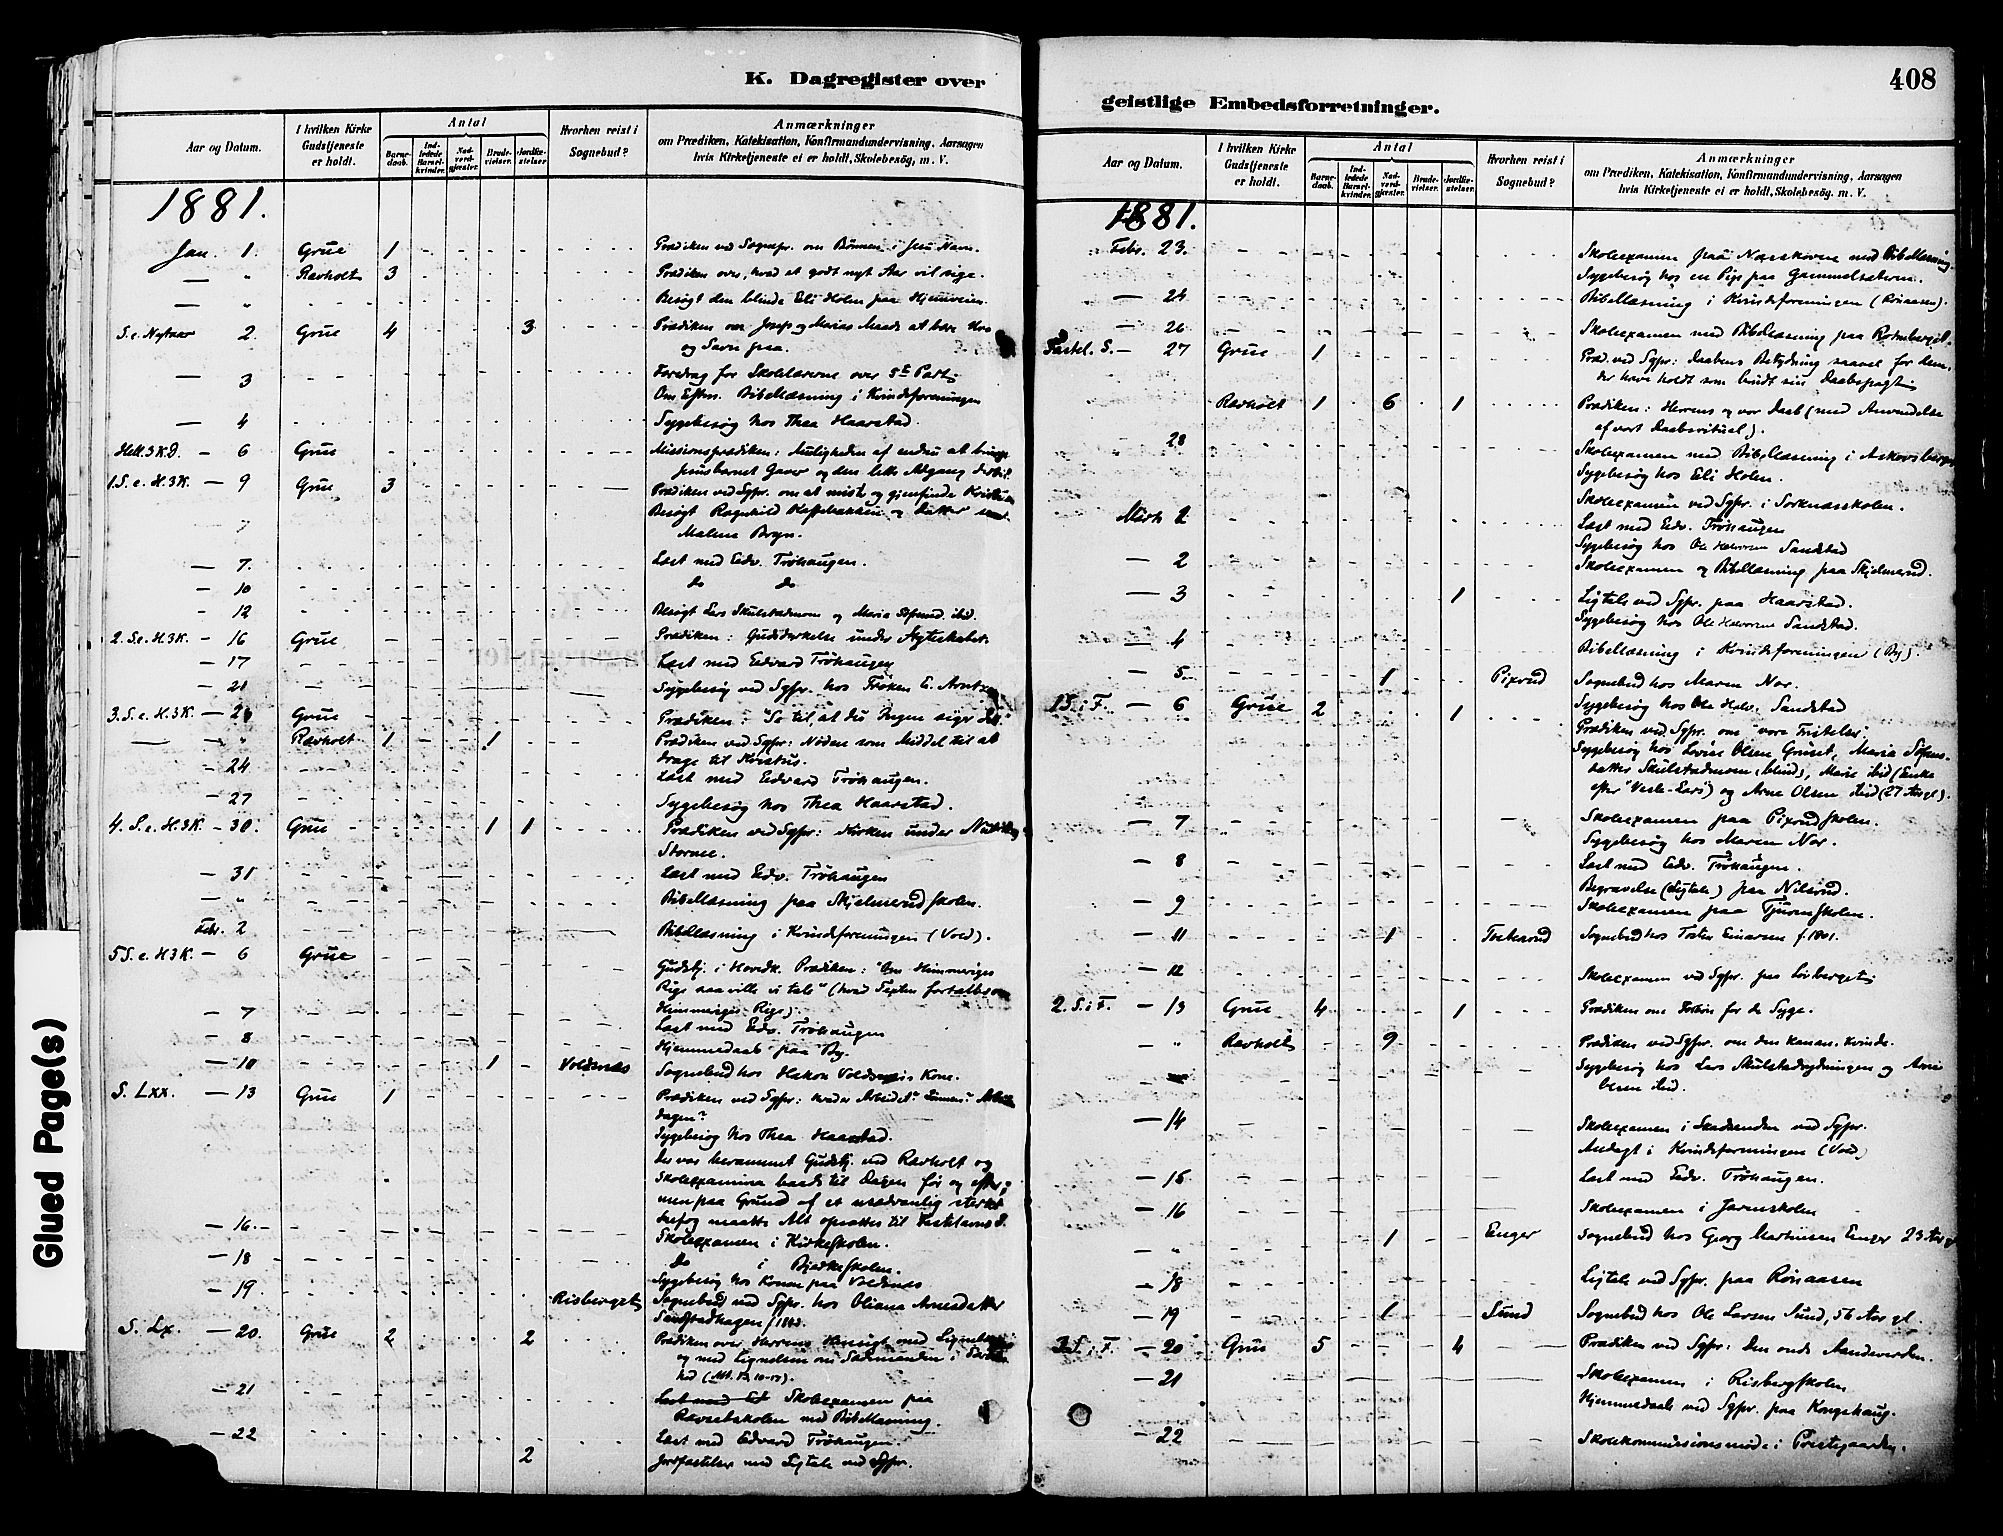 K. Dagregister over
Aar og Datum.
I hvilken Kirke Gudstjeneste er holdt.
Antal
Barnedaab.
Indledede Barnelkvinder.
Nadverdgjæster.
Brudevielser.
Jordfæstelser.
Hvorhen reist i Sognebud?
Anmærkninger
om Prædiken, Katekisation, Konfirmandundervisning, Aarsagen
hvis Kirketjeneste ei er holdt, Skolebesög, m. V.
1881.
Jan. 1. Grue 1 Prædiken ved Sognepr. om Bönnen i Jesu Navn.
— " Ravholt 3 Prædiken over, hvad et godt nyt Aar vil sige.
— " Besögt den blinde Eli Holen paa Hjemveien.
S. e. Nytaar 2. Grue 4 3 Prædiken om Josep og Marias Maade at bære
og Savn paa.
— 3 Foredrag for Skolelærerne over
Om Efterm. Bibellæsning i Kvindeforeningen
— 4 Sygebesög hos Thea Haarstad.
Hell. 3 K.D. — 6 Grue Missionsprædiken: Muligheden af endnu at bringe
Jesusbarnet Gaver og den lette Adgang dertil.
1. S. e. H. 3 K. — 9 Grue 3 Prædiken ved Sgpr. om at miste og gjenfinde
Besögt Ragnhild og Datter
Malene Bryn.
— 7. Læst med Edv. Tröhaugen.
— 10 do do
— 12 Besögt Lars Skulstadmoen og Maria ibid.
2. S. e. H. 3 K. — 16 Grue Prædiken: under Ægteskabet.
— 17 Læst med Edvard Tröhaugen
— 21 Sygebesög ved Sgpr. hos Fröken E. Arntzen
3. S. e. H. 3 K. — Grue Prædiken: "Se til at du Ingen siger det"
— " Ravholt 1 1 Prædiken ved Sgpr: Nöden som Middel til at
drage til Kristus.
— 24 Læst med Edvard Tröhaugen.
— 27 Sygebesög hos Thea Haarstad.
4. S. e. H. 3 K. — 30. Grue 1 1 Prædiken ved Sgpr: Kirken under
Storme.
— 31 Læst med Edv. Tröhaugen
— " Bibellæsning paa Skjelmerud Skolen.
Febr. 2 Bibellæsning i Kvindeforeningen (Vold).
5 S. e. H 3 K. — 6 Grue Gudstj. i Hovedk. Prædiken: "Om Himmeriges
Rige saa ville vi tale" (hvad Texten fortalte om
Himmeriges Rige)
— 7 Læst med Edv. Tröhaugen
— 8 Hjemmedaab paa By.
— 10 1 Voldnæs Sognebud hos Hakon Voldnæs Kone.
S. Lxx. — 13 Grue 1 Prædiken ved Sgpr:
dagen?
Sygebesög hos Thea Haarstad.
Der var berammet Gudstj. ved Ravholt og
Skoleexamina baade til Dagen för og efter;
men paa Grund af et usædvanlig stærkt
Snefog maatte Alt opsættes til Fastelavns S.
— 16. Skoleexamen i Kirkeskolen.
— 18 Do i Bjerkeskolen.
Sygebesög hos Konen paa Voldnæs
— 19. Risberget Sognebud ved Sgpr. hos Oliana Arnesdatter
S. Lx. — 20. Grue 2 2 Prædiken over Herrens Hensigt med Lignelser
og med Lignelsen om Sædemanden i
— 21 Skoleexamen paa
med Bibellæsning.
— 22 Læst med Edvard Tröhaugen.
2 Jordfæstelse med Ligtale ved Sgpr.
geistlige Embedsforretninger.
408
Aar og Datum.
I hvilken Kirke Gudstjeneste er holdt.
Antal
Barnedaab.
Indledede Barnelkvinder.
Nadverdgjæster.
Brudevielser.
Jordfæstelser.
Hvorhen reist i Sognebud?
Anmærkninger
om Prædiken, Katekisation, Konfirmandundervisning, Aarsagen
hvis Kirketjeneste ei er holdt, Skolebesög, m. V.
1881.
Febr. 23. Skoleexamen paa Næsskoven med Bibellæsning
Sygebesög hos en Pige paa Gammelsætern.
— 24 Bibellæsning i Kvindeforeningen (Rönaasen).
— 26 Skoleexamen med Bibellæsning paa Rotnberget.
Fastel. S. — 27 Grue 1 Præd. ved Sgpr: Daabens Betydning saavel for dem,
der have holdt som brudt sin Daabspagt
Ravholt 1 6 1 Prædiken: Herrens og vor Daab (med Anvendelse
af vort Daabsrituel).
28 Skoleexamen med Bibellæsning i
Sygebesög hos Eli Holen.
Skoleexamen ved Sgpr. i Sorknæsskolen.
Marts Læst med Edv. Tröhaugen
Sygebesög hos Ole Sandstad
— 2 Skoleexamen og Bibellæsning paa Skjelmerud.
— 3 1 Ligtale ved Sgpr. paa Haarstad.
Sygebesög hos Ole Sandstad.
— 4 Bibellæsning i Kvindeforeningen (By).
— 5. 1 Pixrud Sognebud hos Maren Nor.
1 S. i F. — 6 Grue 2 1 Sygebesög hos Ole Halv. Sandstad
Prædiken ved Sgpr. om "vore Fristelser.
Sygebesög hos Lovise Olsen Grinet, Maria
datter Skulstadmoen (blind), Marie ibid (Enke
efter "Vesle-Lars) og Arne Olsen ibid (27 Aar gl.).
— 7 Skoleexamen paa Pixrud Skolen.
Sygebesög hos Maren Nor.
— 8 Læst med Edv. Tröhaugen.
Begravelse (Ligtale) paa Nilsrud.
— 9 Skoleexamen paa Tjuren Skolen.
— 11 1 Sognebud hos Einarsen f. 1801.
— 12 Skoleexamen ved Sgpr. paa
2. S. i F. — 13 Grue 4 1 Prædiken om Forbön for de Syge.
— " Ravholt 9 Prædiken ved Sgpr. om den kanan. Kvinde.
Sygebesög hos Lars Skulstadrydningen og
ibid.
— 14 Skoleexamen i ved Sgpr.
Andagt i Kvindeforeningen (Vold)
— 15 Læst med Edv. Tröhaugen.
— 16 Skoleexamen i Jarenskolen
— " 1 Enger Sognebud hos Georg Martinsen Enger 23 Aar gl
— 18 Ligtale ved Sgpr. paa Rönaasen
— 19 1 Sund Sognebud hos Ole Larsen Sund, 56 Aar gl.
3. S. i F. — 20 Grue 5 4 Prædiken ved Sgpr: Den onde Aandeverden.
— 21 Skoleexamen i Risbergskolen
Hjemmedaab ved Sgpr. paa Kongshaug.
— 22 Skolekommissionsmöde i Præstegaarden.
Glued Page(s)